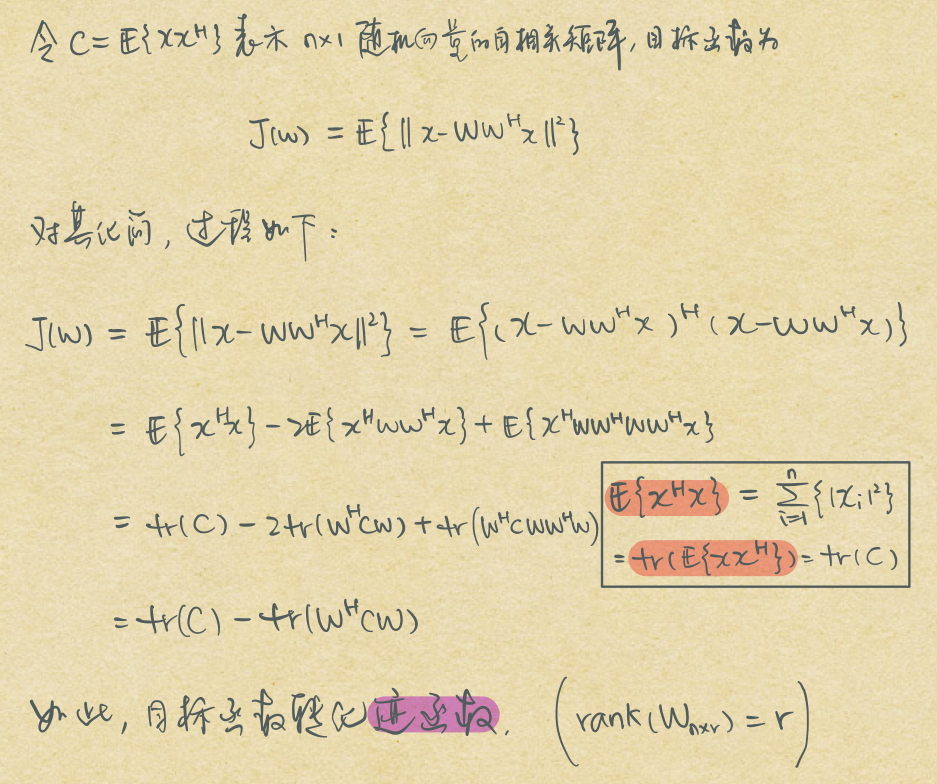 令 C = E{xxᴴ} 表示 n×1 随机向量的自相关矩阵, 目标函数为
J(w) = E{‖x-WWᴴx‖²}
对其化简, 过程如下:
J(W) = E{‖x-WWᴴx‖²} = E{(x-WWᴴx)ᴴ(x-WWᴴx)}
= E{xᴴx} - 2E{xᴴWWᴴx} + E{xᴴWWᴴWWᴴx}
= tr(C) - 2tr(WᴴCW) + tr(WᴴCWWᴴW)
E{xᴴx} = ∑ⁿᵢ₌₁{|xᵢ|²}
= tr(E{xxᴴ}) = tr(C)
= tr(C) - tr(WᴴCW)
如此, 目标函数转化迹函数. (rank(Wₙₓᵣ) = r)